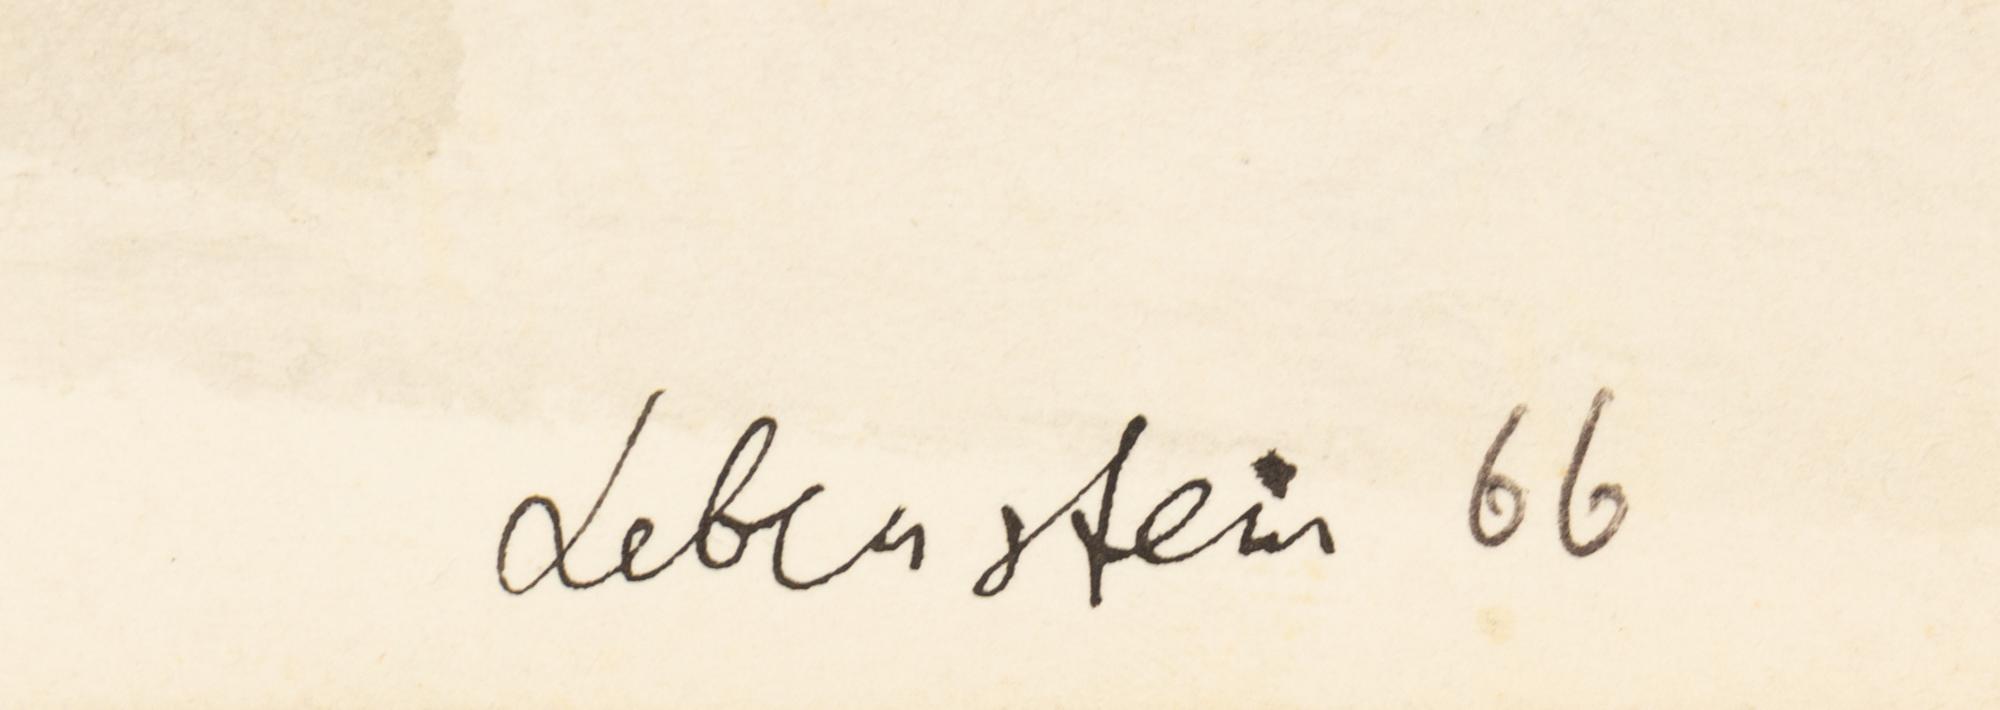 Lebenstein 66